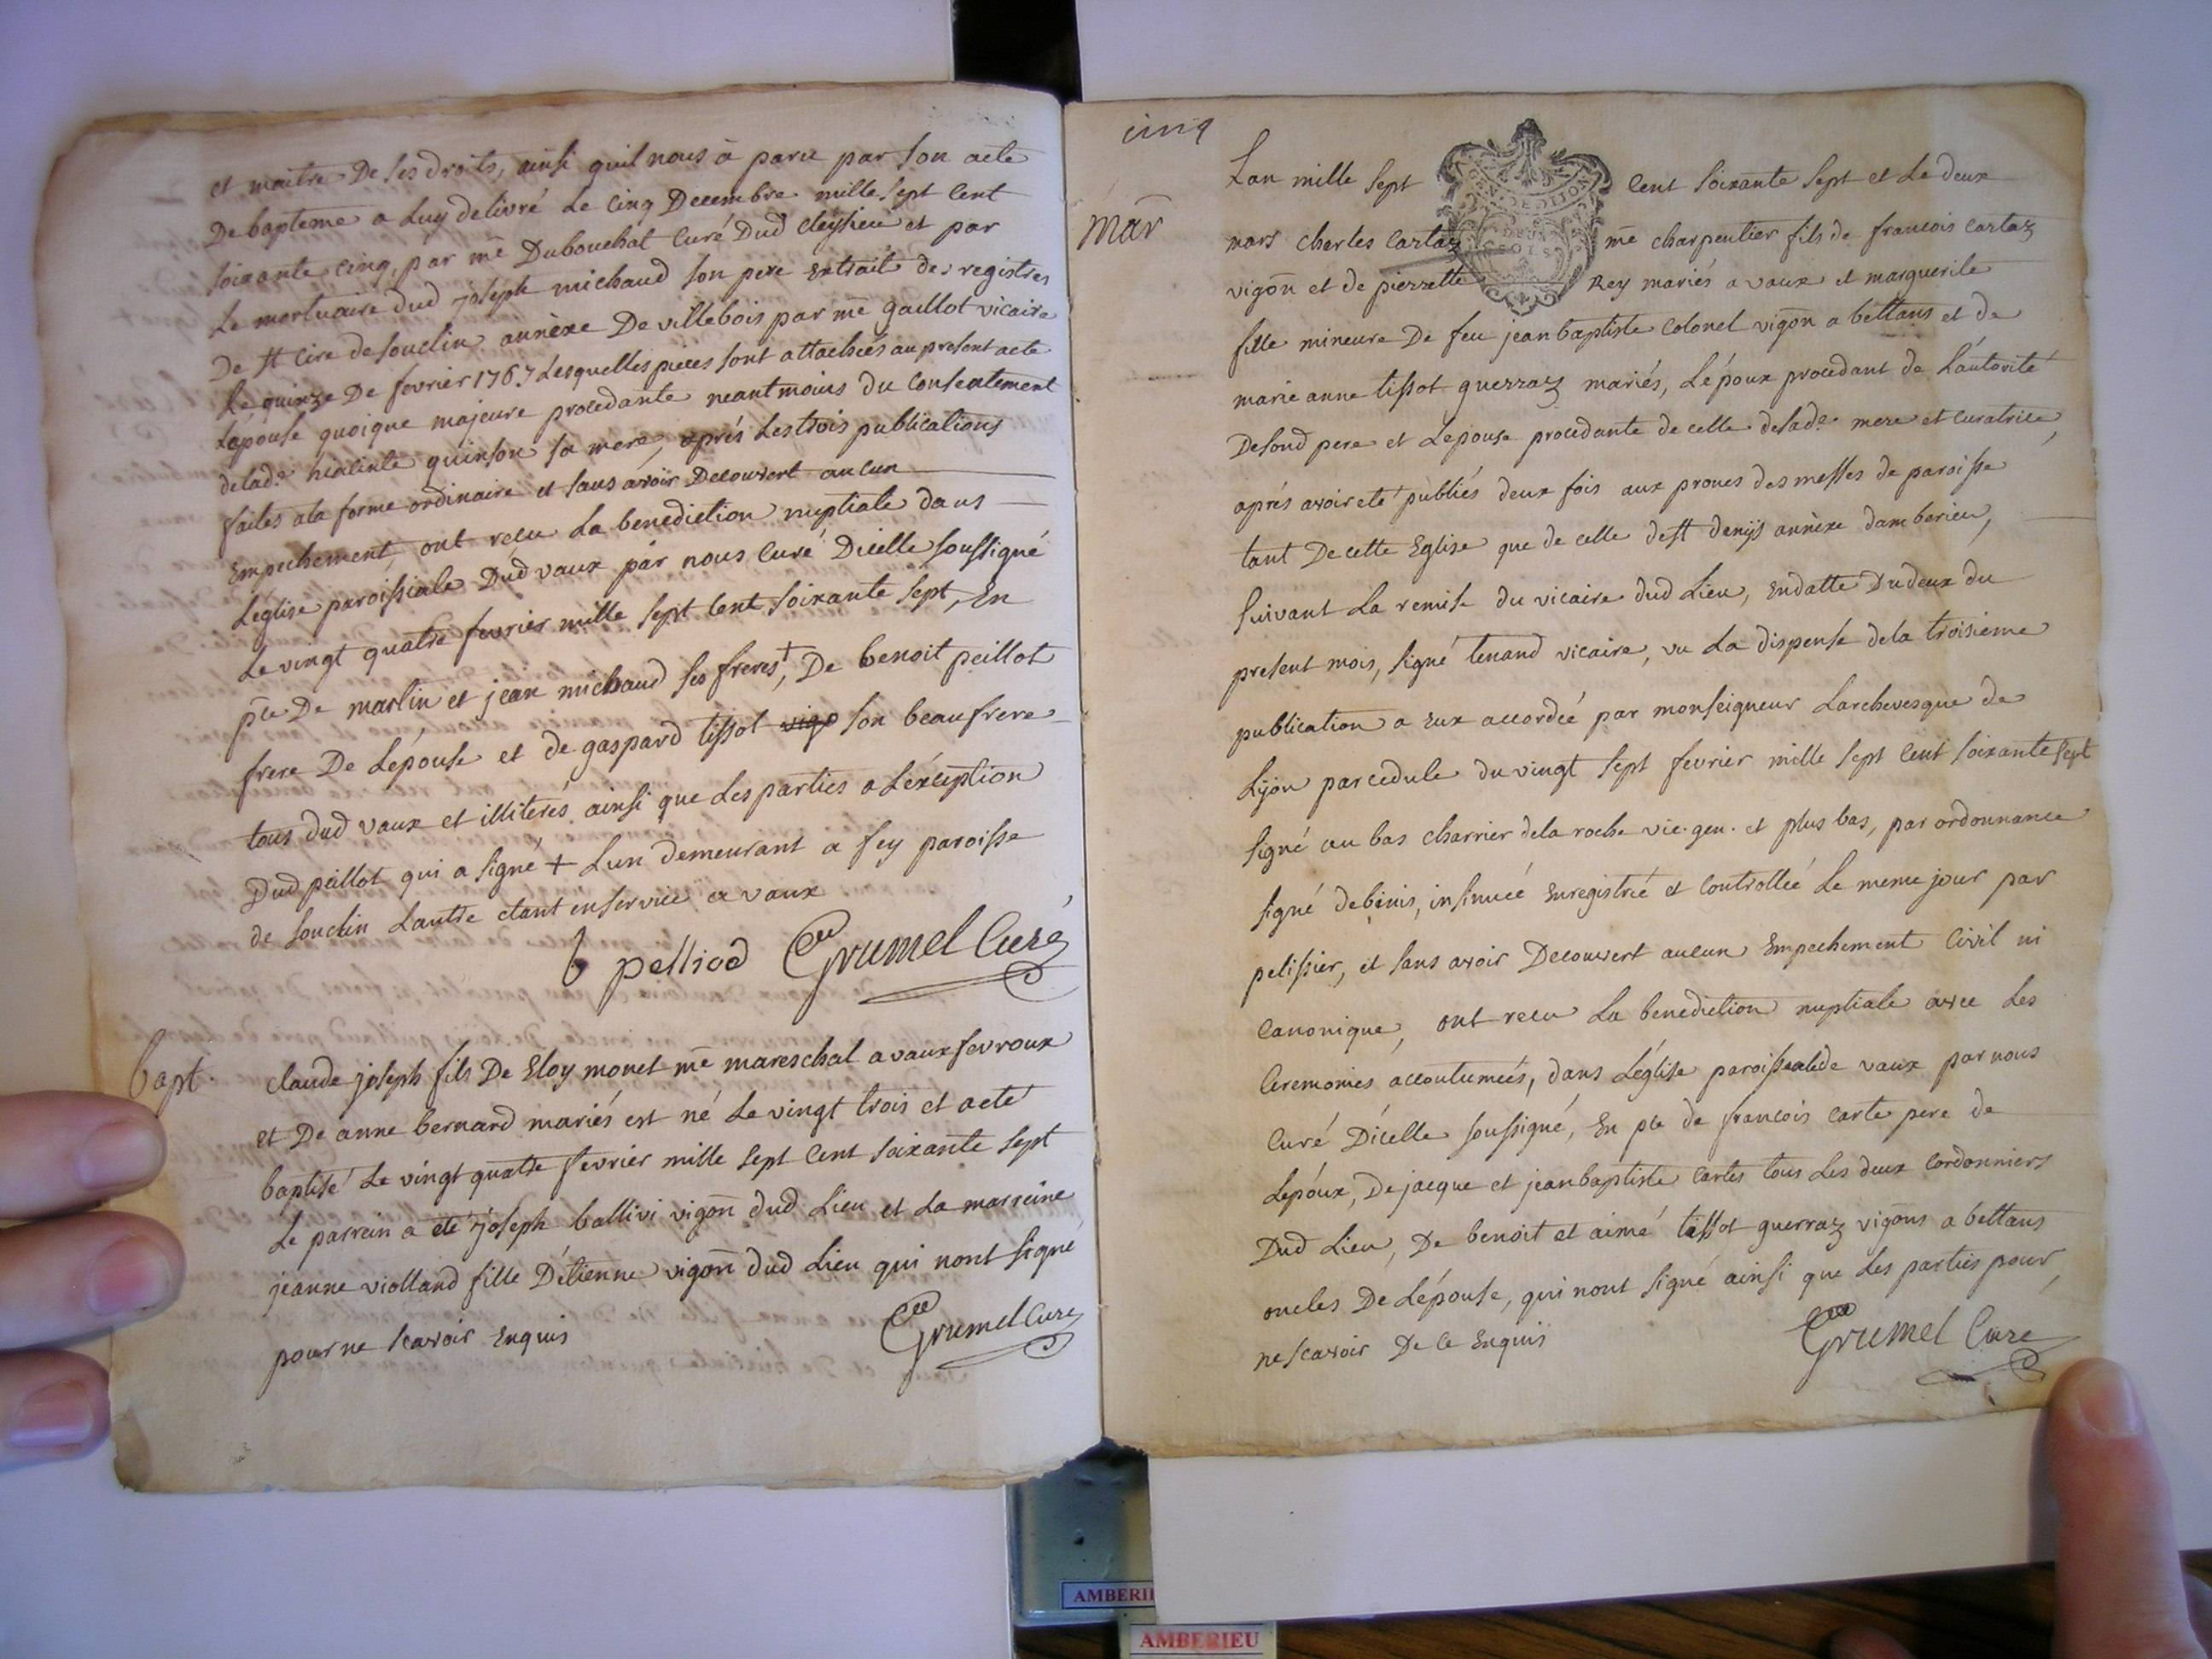 et maitre De ses droits, ainsi quil nous à paru par son acte
De bapteme a Luy delivré Le cinq Decembre mille sept cent
soixante cinq, par me Dubouchat curé Dud cleysieu et par
Le mortuaire dud joseph michaud son pere Extrait des registres
De st Cire de souclin annèxe De villebois par me gaillot vicaire
Le quinze De fevrier 1767 Lesquelles pieces sont attachées au present acte
Lépouse quoique majeure procedante neantmoins du consentement
delade hiacinte quinson sa mere, aprés Les trois publications
faites ala forme ordinaire et sans avoir Decouvert aucun
Empechement, ont recu La benediction nuptiale dans
Léglise paroissiale Dud vaux par nous curé Dicelle soussigné
Le vingt quatre fevrier mille sept cent soixante sept, En
pce De martin et jean michaud ses freres+, De benoit peillot
frere De Lépouse et de gaspard tissot vigo son beaufrere
tous dud vaux et illiterés ainsi que Les parties a Léxception
Dud peillot qui a signé + Lun demeurant a fey paroisse
de souclin Lautre etant en service a vaux
b pelliod Grumel Curé
bapt.
claude joseph fils De Eloy monet me mareschal a vauxfevroux
et De anne bernard mariés est né Le vingt trois et a eté
baptisé Le vingt quatre fevrier mille sept cent soixante sept
Le parrein a eté joseph ballivi vigon dud Lieu et La marreine
jeanne violland fille Détienne vigon dud Lieu qui nont signé
pour ne scavoir Enquis
Grumel Curé
cinq
Mar
GEN DE DIJON
Lan mille sept cent soixante sept et Le deux
mars charles cartaz me charpentier fils de francois cartaz
vigon et de pierrette Rey mariés a vaux et marguerite
fille mineure De feu jean baptiste Colonel vigon a bettans et de
marie anne tissot guerraz mariés, Lépoux procedant de Lautorité
De sond pere et Lepouse procedante de celle delade mere et curatrice,
aprés avoir eté publiés deux fois aux prones des messes de paroisse
tant De cette Eglise que de celle de st denijs annèxe damberieu,
suivant La remise du vicaire dud Lieu, Endatte Du deux du
present mois, signé tenand vicaire, vu La dispense dela troisieme
publication a Eux accordée par monseigneur Larchevesque de
Lijon par cedule du vingt sept fevrier mille sept cent soixante sept
signé au bas charrier dela roche vic. gen. et plus bas, par ordonnance
signé debinis, insinuéé Enregistréé et controlléé Le meme jour par
pelissier, et sans avoir Decouvert aucun Empechement civil ni
canonique, ont recu La benediction nuptiale avec Les
ceremonies accoutuméés, dans Léglise paroissealede vaux par nous
curé Dicelle soussigné, En pce de francois carte pere de
Lepoux, De jacque et jeanbaptiste cartes tous Les deux cordonniers
Dud Lieu, De benoit et aimé tissot guerraz vigons a bettans
oncles De Lépouse, qui nont signé ainsi que Les parties pour
ne scavoir De ce Enquis
Grumel Curé
AMBERIE
AMBERIEU